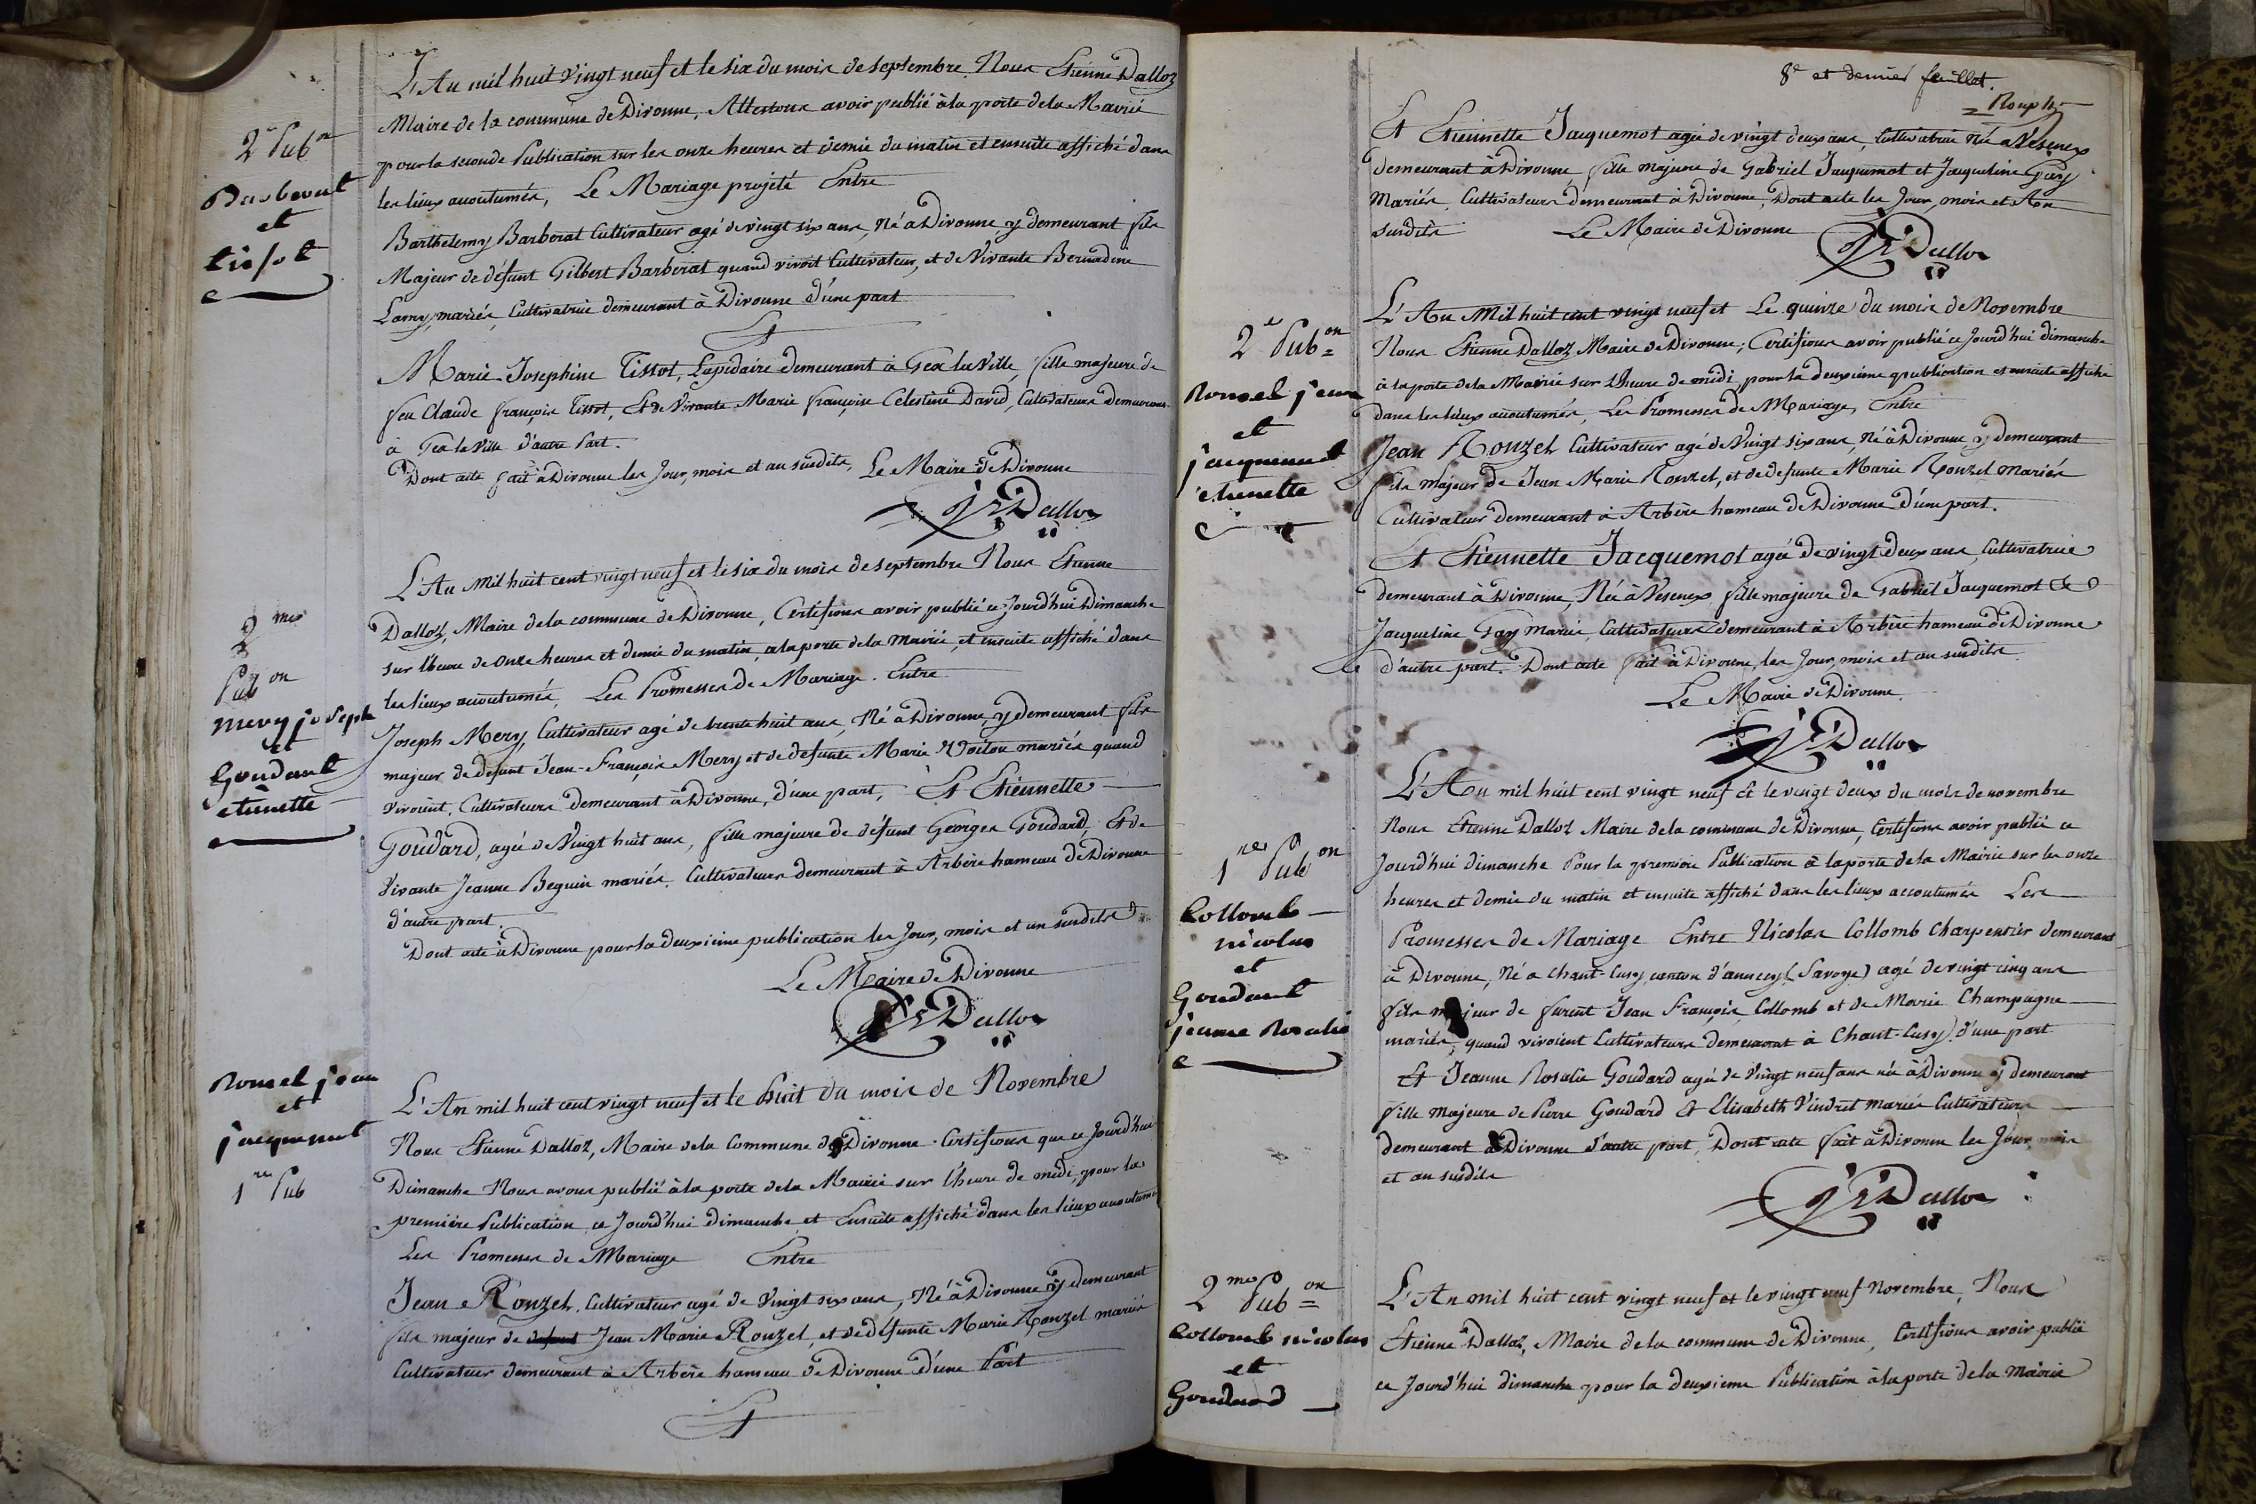 2e Pubon
Barberat
et
tissot
L'An mil huit vingt neuf et le six du mois de septembre. Nous Etienne Dalloz
Maire de la commune de Divonne, Attestons avoir publié à la porte de la Mairie
pour la seconde Publication sur les onze heures et demie du matin et ensuite affiché dans
les lieux accoutumés, Le Mariage projeté Entre
Barthelemy Barberat Cultivateur agé de vingt six ans, Né à Divonne y demeurant fils
Majeur de défunt Gilbert Barberat quand vivoit Cultivateur, et de Vivante Bernardine
Lamy, mariés, Cultivatrice demeurant à Divonne d'une part
Et
Marie-Josephine Tissot, Lapidaire demeurant à Gex la Ville, fille majeure de
feu Claude françois Tissot, Et de Vivante Marie françoise Celestine David, Cultivateurs demeurant
à Gex la Ville d'autre Part.
Dont acte fait à Divonne les Jour, mois et an susdits, Le Maire de Divonne
Dalloz
2me
Pubon
mery joseph
et
Goudard
etienette
L'An mil huit cent vingt neuf et le six du mois de septembre Nous Etienne
Dalloz, Maire de la commune de Divonne, Certifions avoir publié ce Jourd'hui Dimanche
sur l'heure de Onze heures et demie du matin, a la porte de la Mairie, et ensuite affiché dans
les lieux accoutumés, Les Promesses de Mariage. Entre
Joseph Mery, Cultivateur agé de trente huit ans, Né à Divonne, y demeurant fils
majeur de défunt Jean-François Mery et de défunte Marie Voitou mariés quand
vivoient, Cultivateurs demeurant à Divonne, d'une part, Et Etiennette
Goudard, agée de Vingt huit ans, fille majeure de défunt Georges Goudard, Et de
Vivante Jeanne Beguin mariés, Cultivateurs demeurant à Arbère hameau de Divonne
d'autre part.
Dont acte à Divonne pour la deuxieme publication les Jour, mois et an susdits
Le Maire de Divonne
Dalloz
Ronzel jean
et
jacquemot
1re Pub
L'An mil huit cent vingt neuf et le huit du mois de Novembre
Nous Etienne Dalloz, Maire de la Commune de Divonne. Certifions que ce Jourd'hui
Dimanche Nous avons publié à la porte de la Mairie sur l'heure de midi, pour la
première Publication ce Jourd'hui dimanche et Ensuite affiché dans les lieux accoutumés
Les Promesses de Mariage Entre
Jean Ronzel, Cultivateur agé de Vingt six ans, Né à Divonne y demeurant
fils majeur de défunt Jean Marie Ronzel, et de défunte Marie Ronzel mariés
Cultivateur demeurant à Arbère hameau de Divonne d'une Part
Et
8e et dernier feuillet.
Et Etiennette Jacquemot agée de vingt deux ans, Cultivatrice Née à Veseneux
demeurant à Divonne, fille majeure de Gabriel Jacquemot et Jacqueline Gay
Mariés, Cultivateurs demeurant à Divonne, Dont acte les Jour, mois et An
susdits Le Maire de Divonne
Dalloz
2e Pubon
Ronzel jean
et
jacquemot
etienette
L'An Mil huit cent vingt neuf et Le quinze du mois de Novembre
Nous Etienne Dalloz Maire de Divonne, Certifions avoir publié ce Jourd'hui dimanche
à la porte de la Mairie sur L'heure de midi, pour la deuxieme publication et ensuite affiché
dans les lieux accoutumés, Les Promesses de Mariage, Entre
Jean Ronzel Cultivateur agé de Vingt six ans, Né à Divonne y demeurant
fils majeur de Jean Marie Ronzel, et de défunte Marie Ronzel mariés
Cultivateur demeurant à Arbère hameau de Divonne d'une part.
Et Etiennette Jacquemot agée de vingt deux ans, Cultivatrice
demeurant à Divonne, Née à Veseneux fille majeure de Gabriel Jacquemot Et
Jacqueline Gay Mariés, Cultivateurs demeurant à Arbère hameau de Divonne
d'autre part. Dont acte fait à Divonne, les Jour, mois et an susdits.
Le Maire de Divonne
Dalloz
1re Pubon
Collomb
nicolas
et
Goudard
jeanne Rosalie
L'An mil huit cent vingt neuf et le vingt deux du mois de novembre
Nous Etienne Dalloz Maire de la commune de Divonne, Certifions avoir publié ce
Jourd'hui dimanche Pour la premiere Publication à la porte de la Mairie sur les onze
heures et demie du matin et ensuite affiché dans les lieux accoutumés Les
Promesses de Mariage Entre Nicolas Collomb Charpentier demeurant
à Divonne, Né a Chant-Cusy canton d'annecy (Savoye) agé de vingt cinq ans
fils majeur de furent Jean François Collomb et de Marie Champagne
mariés, quand vivoient Cultivateurs demeurant à Chant-Cusy, d'une part
Et Jeanne Rosalie Goudard agée de Vingt neuf ans née à Divonne y demeurant
fille majeure de Pierre Goudard Et Elisabeth Vindret mariés Cultivateurs
demeurant à Divonne d'autre part, Dont acte fait à Divonne les Jour, mois
et an susdits
Dalloz
2me Pubon
Collomb nicolas
et
Goudard
L'An mil huit cent vingt neuf et le vingt neuf Novembre, Nous
Etienne Dalloz, Maire de la commune de Divonne, Certifions avoir publié
ce Jourd'hui dimanche pour la deuxieme Publication à la porte de la Mairie